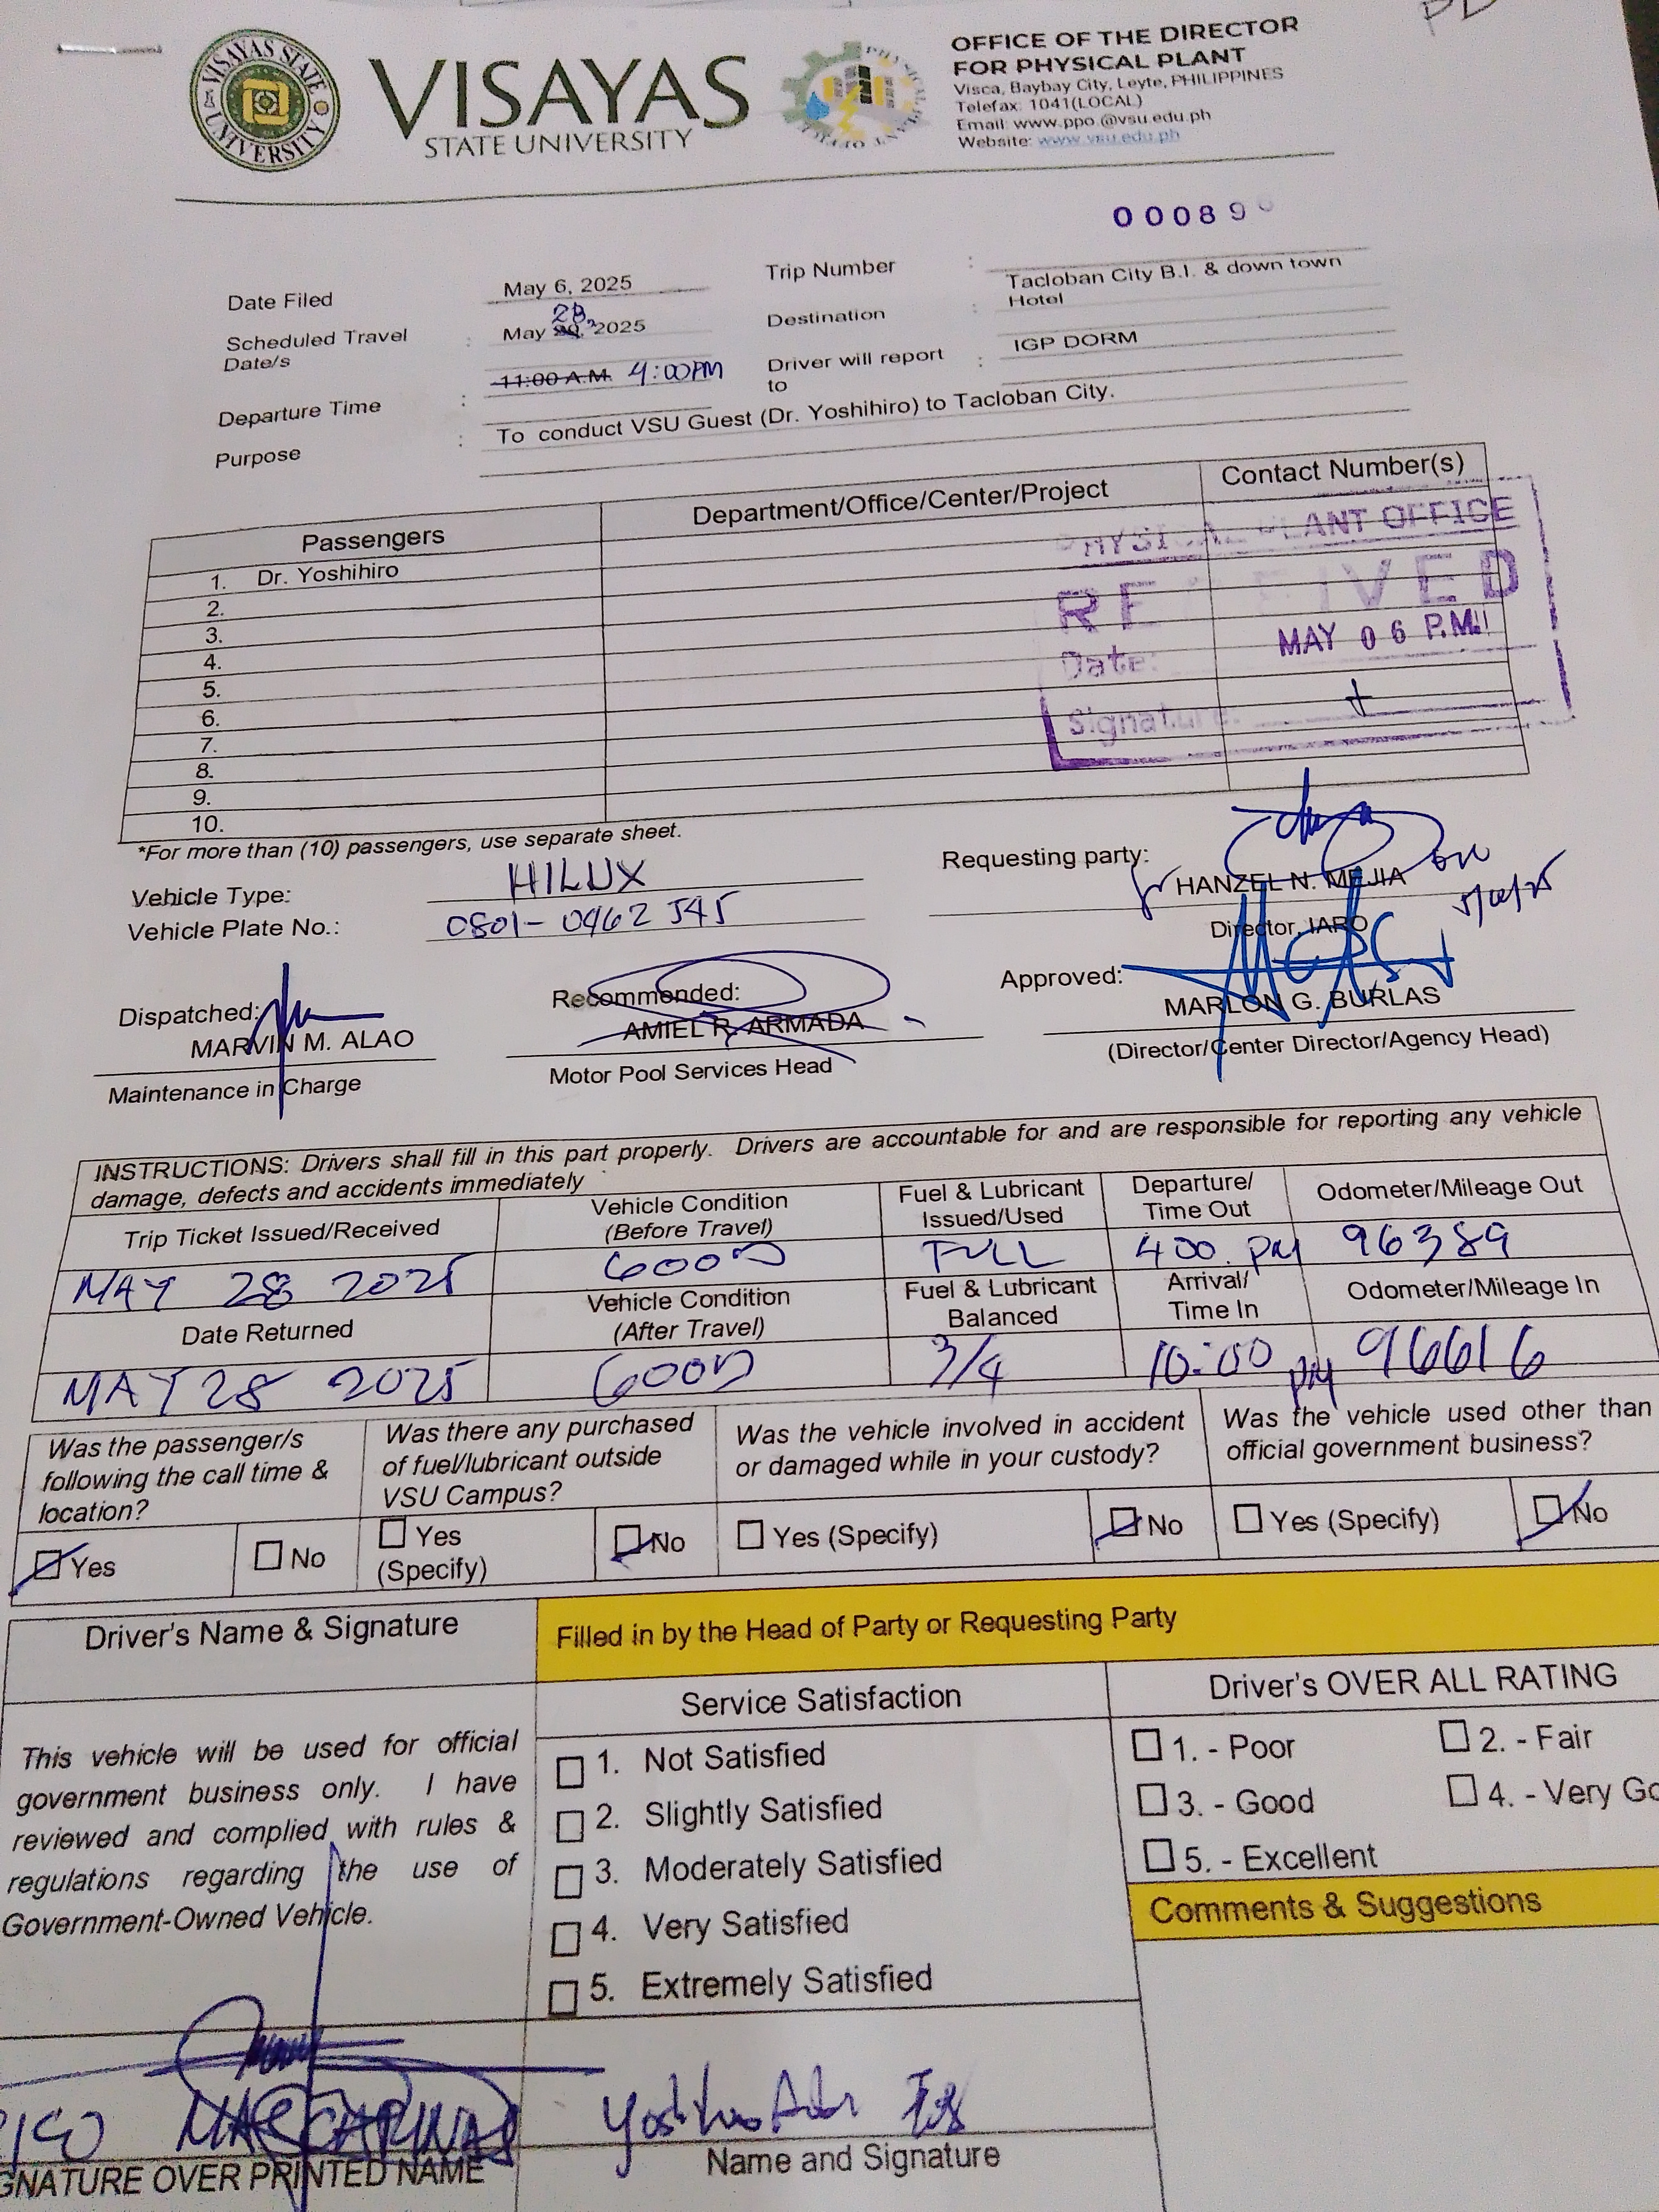 VISAYAS STATE UNIVERSITY
VISAYAS
STATE UNIVERSITY
OFFICE OF THE DIRECTOR
FOR PHYSICAL PLANT
Visca, Baybay City, Leyte, PHILIPPINES
Telefax: 1041(LOCAL)
Email: www.ppo.@vsu.edu.ph
Website: www.vsu.edu.ph
00089
Date Filed May 6, 2025 Trip Number :
Scheduled Travel Date/s : May 28, 2025 Destination : Tacloban City B.I. & down town Hotel
Departure Time : 11:00 A.M. 4:00PM Driver will report to : IGP DORM
Purpose : To conduct VSU Guest (Dr. Yoshihiro) to Tacloban City.
Passengers Department/Office/Center/Project Contact Number(s)
1. Dr. Yoshihiro
2.
3.
4.
5.
6.
7.
8.
9.
10.
PHYSICAL PLANT OFFICE
RECEIVED
Date: MAY 06 P.M.
Signature:
*For more than (10) passengers, use separate sheet.
Vehicle Type: HILUX
Vehicle Plate No.: 0801-0462 545
Requesting party:
for HANZEL N. MEJIA
Director, IARO
Dispatched:
MARVIN M. ALAO
Maintenance in Charge
Recommended:
AMIEL R. ARMADA
Motor Pool Services Head
Approved:
MARLON G. BURLAS
(Director/Center Director/Agency Head)
INSTRUCTIONS: Drivers shall fill in this part properly. Drivers are accountable for and are responsible for reporting any vehicle
damage, defects and accidents immediately
Trip Ticket Issued/Received Vehicle Condition (Before Travel) Fuel & Lubricant Issued/Used Departure/ Time Out Odometer/Mileage Out
MAY 28 2025 GOOD FULL 400 PM 96389
Date Returned Vehicle Condition (After Travel) Fuel & Lubricant Balanced Arrival/ Time In Odometer/Mileage In
MAY 28 2025 GOOD 3/4 10:00 PM 96616
Was the passenger/s following the call time & location?
Was there any purchased of fuel/lubricant outside VSU Campus?
Was the vehicle involved in accident or damaged while in your custody?
Was the vehicle used other than official government business?
Yes No Yes (Specify) No Yes (Specify) No Yes (Specify) No
Driver's Name & Signature
Filled in by the Head of Party or Requesting Party
This vehicle will be used for official
government business only. I have
reviewed and complied with rules &
regulations regarding the use of
Government-Owned Vehicle.
Service Satisfaction
1. Not Satisfied
2. Slightly Satisfied
3. Moderately Satisfied
4. Very Satisfied
5. Extremely Satisfied
Driver's OVER ALL RATING
1. - Poor 2. - Fair
3. - Good 4. - Very Go
5. - Excellent
Comments & Suggestions
GNATURE OVER PRINTED NAME
Name and Signature